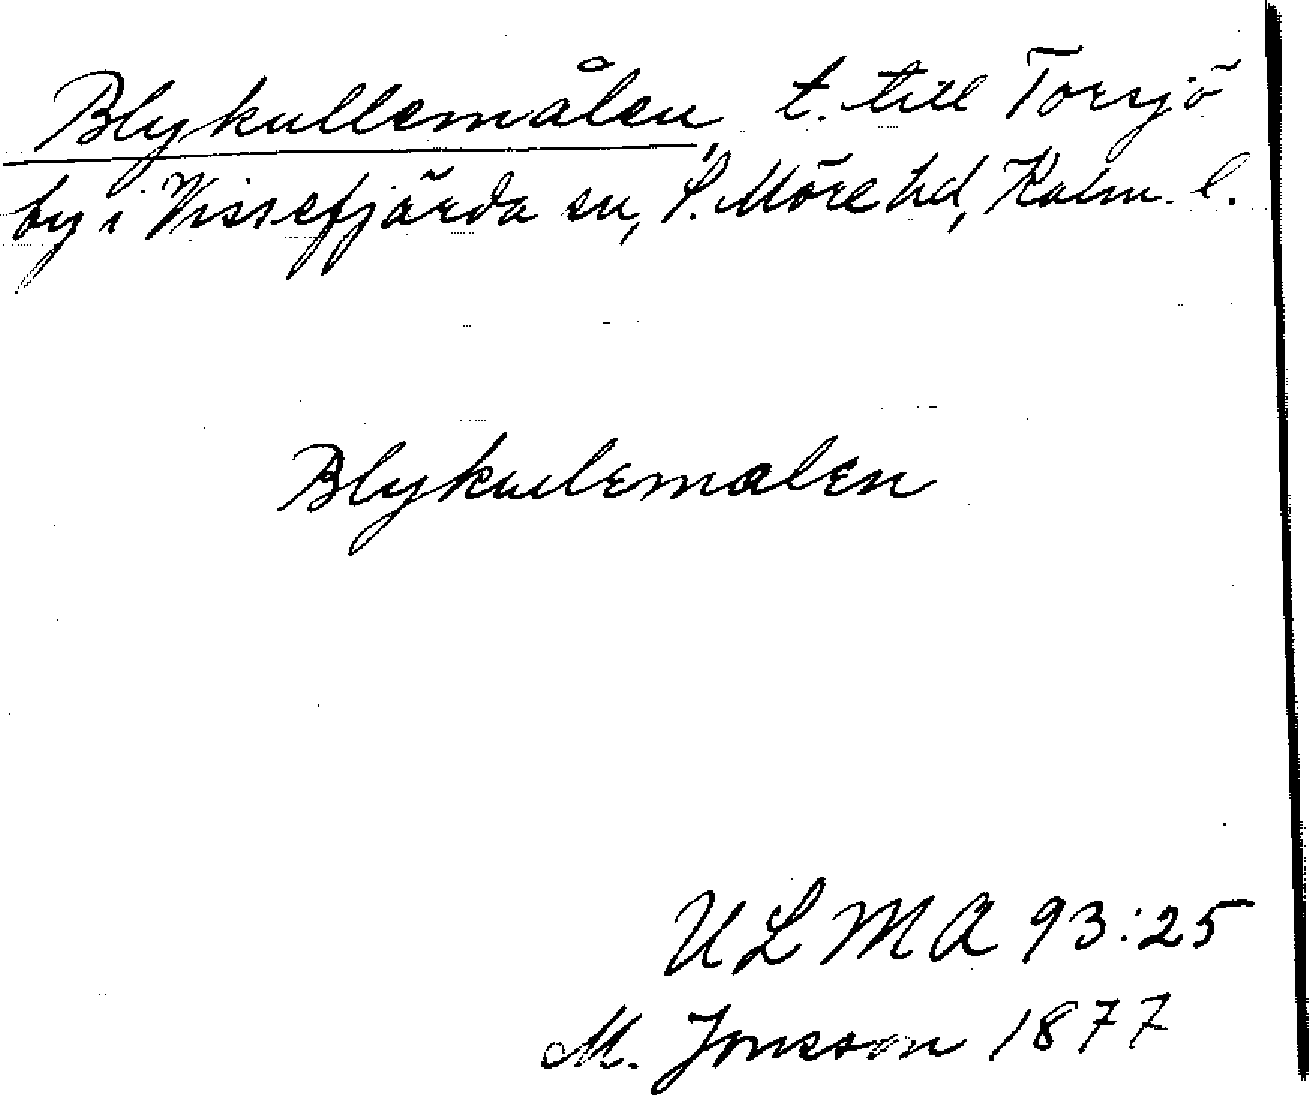 Blykullemålen, t. till Torsjö
by i Vissefjärda sn, S. Möre hd, Kalm. l.
Blykullemalen
ULMA 93:25
M. Jonsson 1877